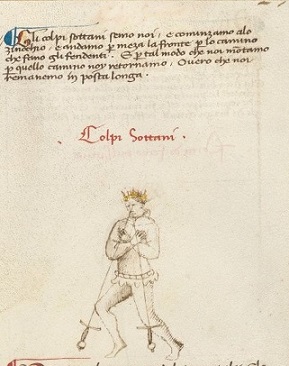 Gli colpi sottani semo noi, e cominzamo a lo
zinochio, e andamo p meza la fronte p lo camino
che fano gli fendenti. E p tal modo che noi montamo
p quello camino noy retornamo, Overo che noi
remanemo in posta longa.
Colpi Sottani